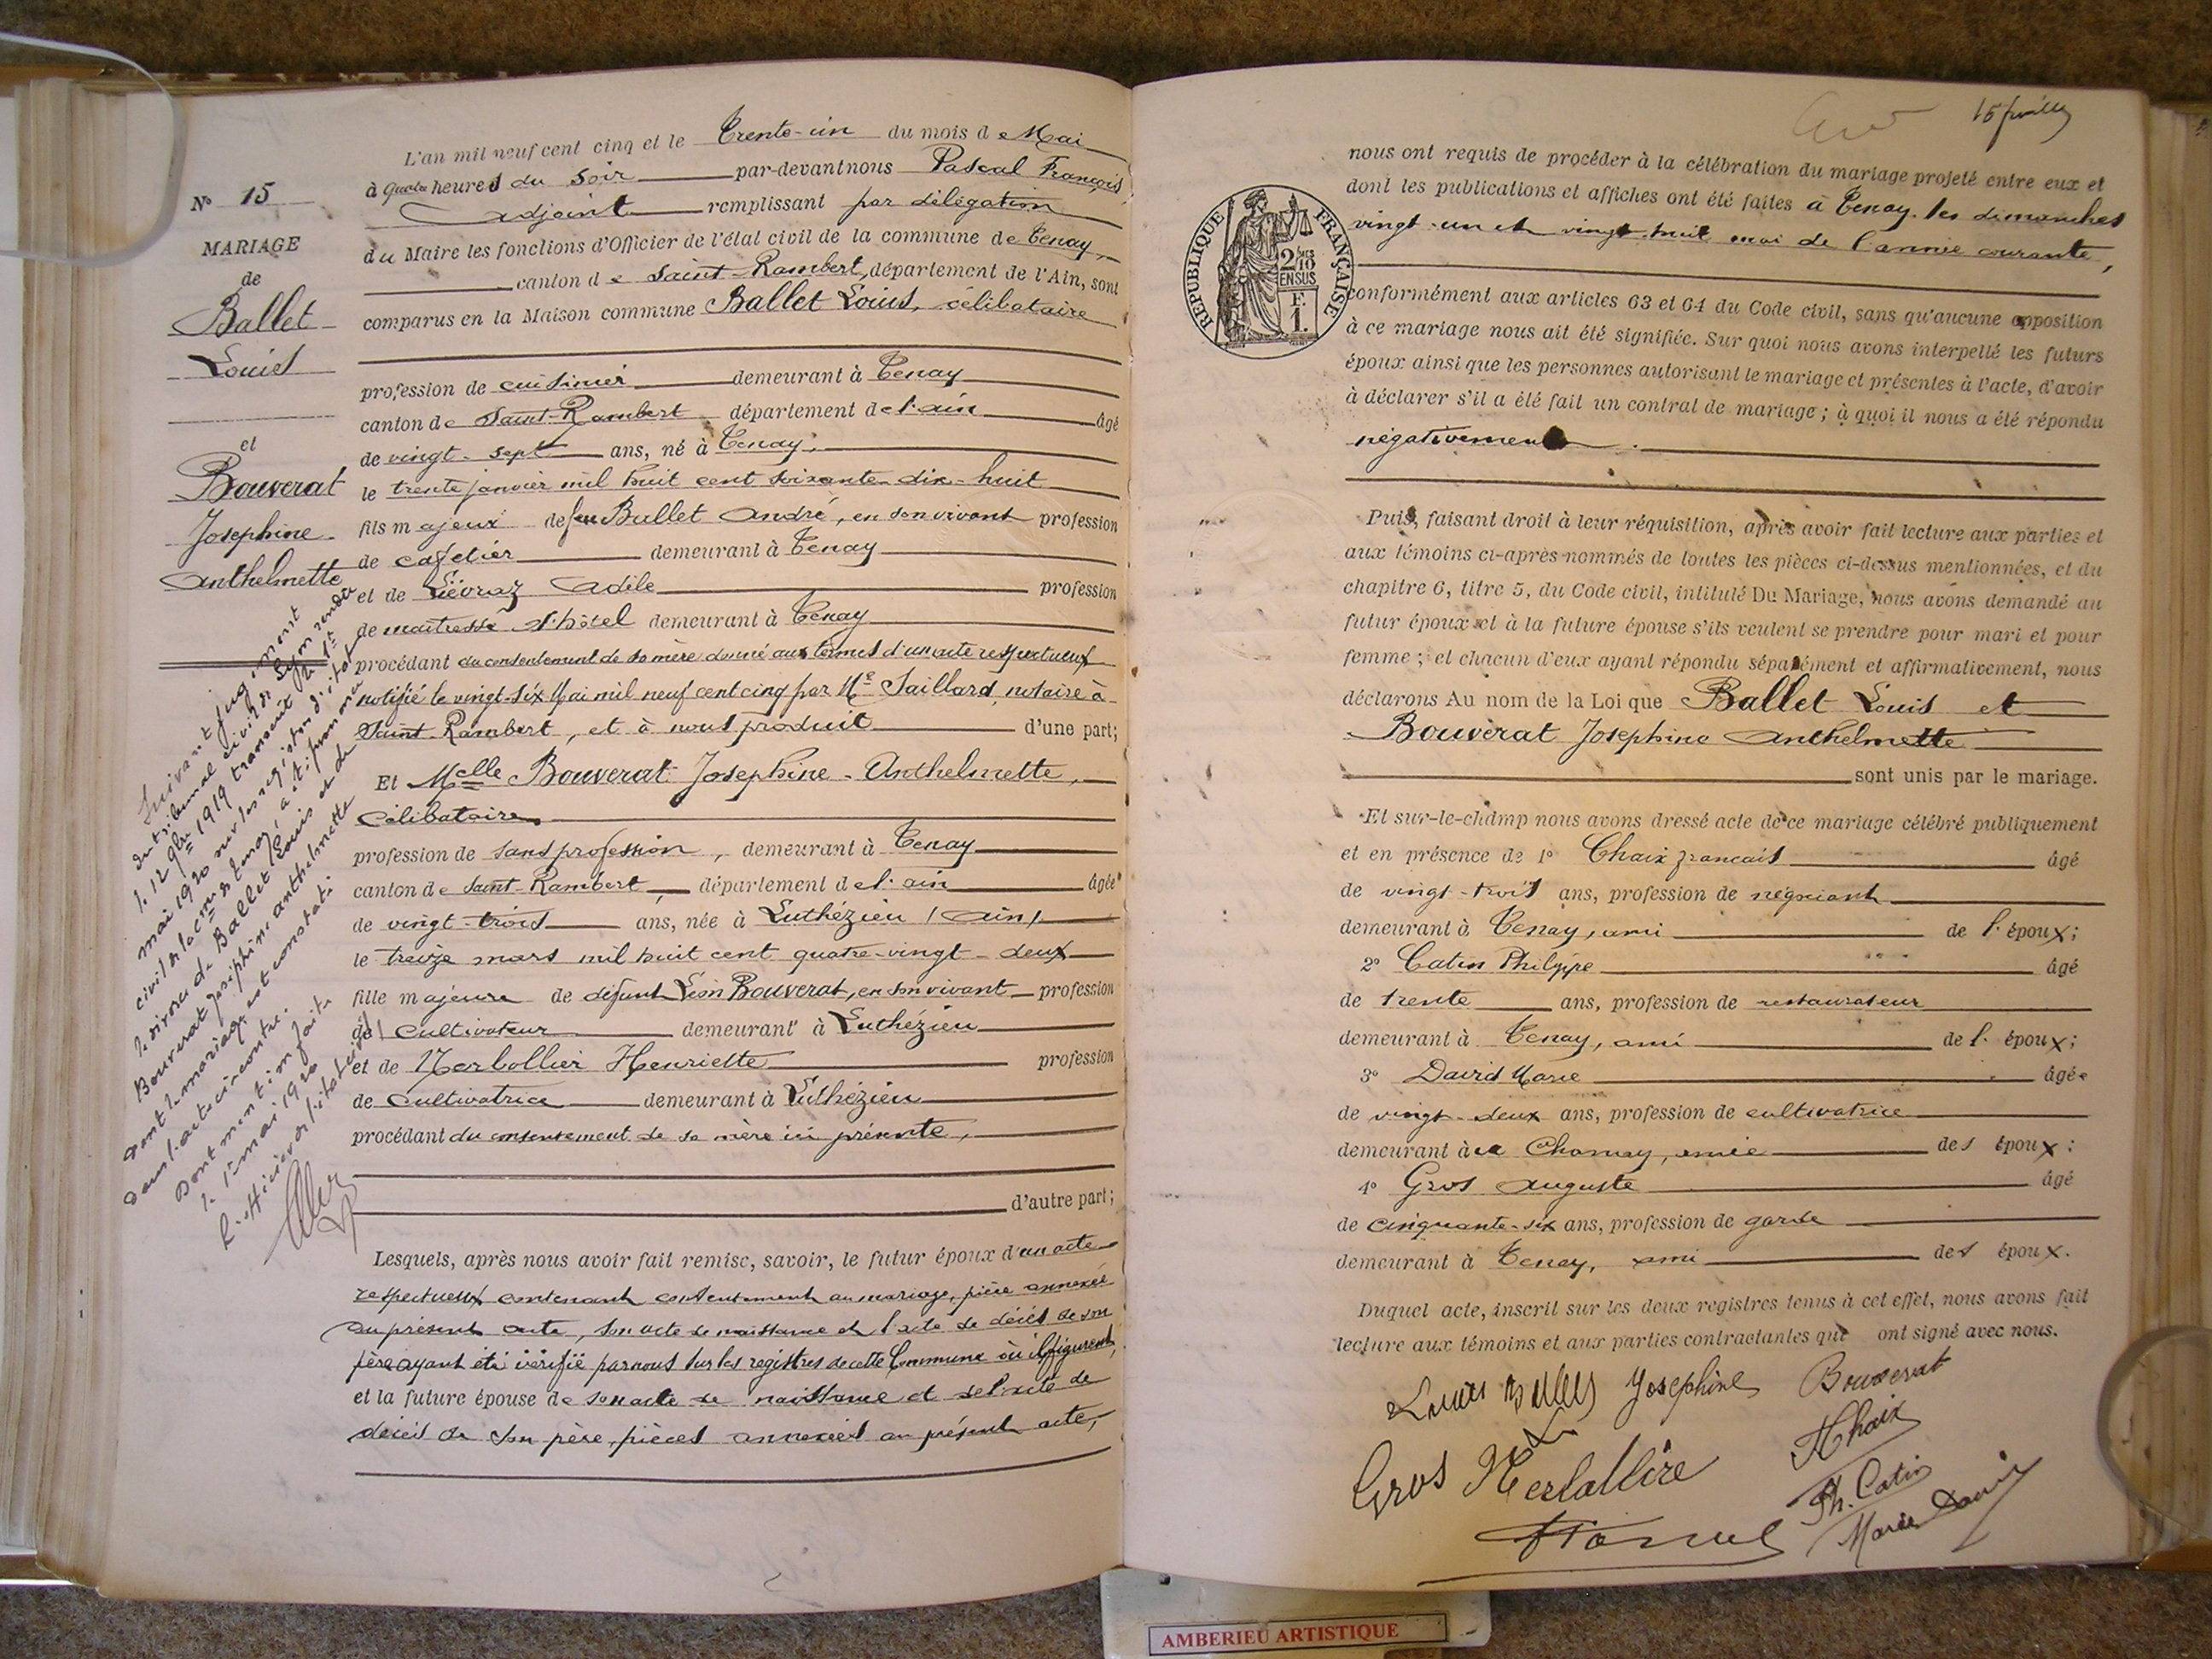 L'an mil neuf cent cinq et le Trente-un du mois de Mai
à quatre heures du soir par-devant nous Pascal François
adjoint remplissant par délégation
du Maire les fonctions d'Officier de l'état civil de la commune de Tenay,
canton de Saint-Rambert, département de l'Ain, sont
comparus en la Maison commune Ballet Louis, célibataire
profession de cuisinier demeurant à Tenay
canton de Saint-Rambert département de l'ain âgé
de vingt-sept ans, né à Tenay,
le trente janvier mil huit cent soixante-dix-huit
fils majeur de feu Ballet André, en son vivant profession
de cafetier demeurant à Tenay
et de Liévraz Adèle profession
de maitresse d'hôtel demeurant à Tenay
procédant du consentement de sa mère donné aux termes d'un acte respectueux
notifié le vingt-six Mai mil neuf cent cinq par Me Saillard, notaire à
Saint-Rambert, et à nous produit d'une part;
Et Melle Bouverat Josephine-Anthelmette,
célibataire,
profession de sans profession, demeurant à Tenay
canton de Saint-Rambert, département de l'ain âgée
de vingt-trois ans, née à Luthézieu (Ain)
le treize mars mil huit cent quatre-vingt-deux
fille majeure de défunt Léon Bouverat, en son vivant profession
de cultivateur demeurant à Luthézieu
et de Merlollier Henriette profession
de cultivatrice demeurant à Luthézieu
procédant du consentement de sa mère ici présente,
d'autre part;
Lesquels, après nous avoir fait remise, savoir, le futur époux d'un acte
respectueux contenant consentement au mariage, pièce annexée
au présent acte, son acte de naissance et l'acte de décès de son
père ayant été vérifié par nous sur les registres de cette Commune où il figurent,
et la future épouse de son acte de naissance et de l'acte de
décès de son père, pièces annexées au présent acte,
N° 15
MARIAGE
de
Ballet
Louis
et
Bouverat
Josephine
Anthelmette
Suivant jugement
du tribunal civil de Lyon rendu
le 12 9bre 1919 transcrit le 1er
mai 1920 sur les registres d'état
civil de la cne de Tenay, a été prononcé
le divorce de Ballet Louis et de
Bouverat Joséphine anthelmette
dont le mariage est constaté
dans l'acte ci-contre.
Dont mention faite
le 1er mai 1920
L'officier de l'état civil
15 juillet
nous ont requis de procéder à la célébration du mariage projeté entre eux et
dont les publications et affiches ont été faites à Tenay, les dimanches
vingt-un et vingt-huit mai de l'année courante,
RÉPUBLIQUE FRANÇAISE
2/10
EN SUS
F.
1.
conformément aux articles 63 et 64 du Code civil, sans qu'aucune opposition
à ce mariage nous ait été signifiée. Sur quoi nous avons interpellé les futurs
époux ainsi que les personnes autorisant le mariage et présentes à l'acte, d'avoir
à déclarer s'il a été fait un contrat de mariage; à quoi il nous a été répondu
négativement.
Puis, faisant droit à leur réquisition, après avoir fait lecture aux parties et
aux témoins ci-après nommés de toutes les pièces ci-dessus mentionnées, et du
chapitre 6, titre 5, du Code civil, intitulé Du Mariage, nous avons demandé au
futur époux et à la future épouse s'ils veulent se prendre pour mari et pour
femme; et chacun d'eux ayant répondu séparément et affirmativement, nous
déclarons Au nom de la Loi que Ballet Louis et
Bouverat Josephine Anthelmette
sont unis par le mariage.
Et sur-le-champ nous avons dressé acte de ce mariage célébré publiquement
et en présence de 1° Chaix Francais âgé
de vingt-trois ans, profession de négociant
demeurant à Tenay, ami de l'époux;
2° Catin Philippe âgé
de trente ans, profession de restaurateur
demeurant à Tenay, ami de l'époux;
3° David Marie âgée
de vingt-deux ans, profession de cultivatrice
demeurant à Charnay, amie des époux;
4° Gros Auguste âgé
de cinquante-six ans, profession de garde
demeurant à Tenay, ami des époux.
Duquel acte, inscrit sur les deux registres tenus à cet effet, nous avons fait
lecture aux témoins et aux parties contractantes qui ont signé avec nous.
Louis Ballet Josephine Bouverat
Gros
Chaix
Ph. Catin
Marie David
AMBERIEU ARTISTIQUE